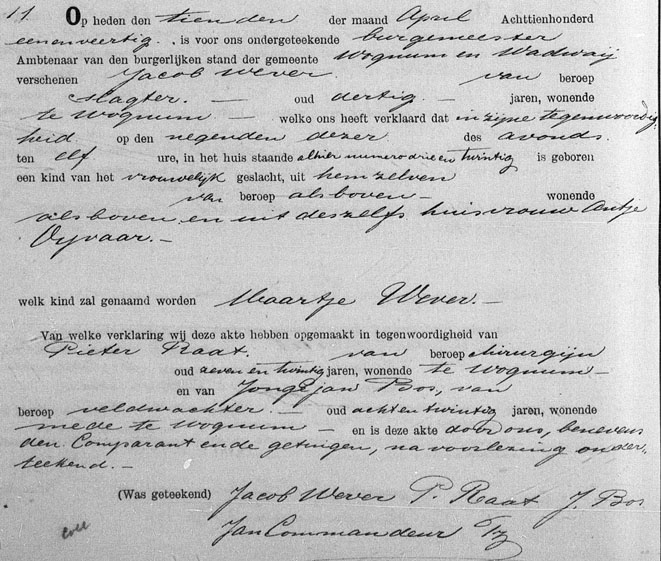 11. Op heden den tienden der maand April Achttienhonderd
eenenveertig., is voor ons ondergeteekende burgemeester
Ambtenaar van den burgerlijken stand der gemeente Wognum en Wadway
verschenen Jacob Wever van beroep
slagter. — oud dertig. — jaren, wonende
te Wognum — welke ons heeft verklaard dat in zijne tegenwoordig
heid op den negenden dezer des avonds.
ten elf ure, in het huis staande alhier numero drie en twintig is geboren
een kind van het vrouwelijk geslacht, uit hem zelven
van beroep als boven — wonende
als boven, en uit deszelfs huisvrouw Antje
Vijvaar. —
welk kind zal genaamd worden Maartje Wever. —
Van welke verklaring wij deze akte hebben opgemaakt in tegenwoordigheid van
Pieter Raat. van beroep chirurgijn
oud zeven en twintig jaren, wonende te Wognum —
en van Jonge jan Bos, van
beroep veldwachter. — oud acht en twintig jaren, wonende
mede te Wognum — en is deze akte door ons, benevens
den Comparant en de getuigen, na voorlezing onder-
teekend. —
(Was geteekend) Jacob Wever P. Raat J. Bos
Jan Commandeur